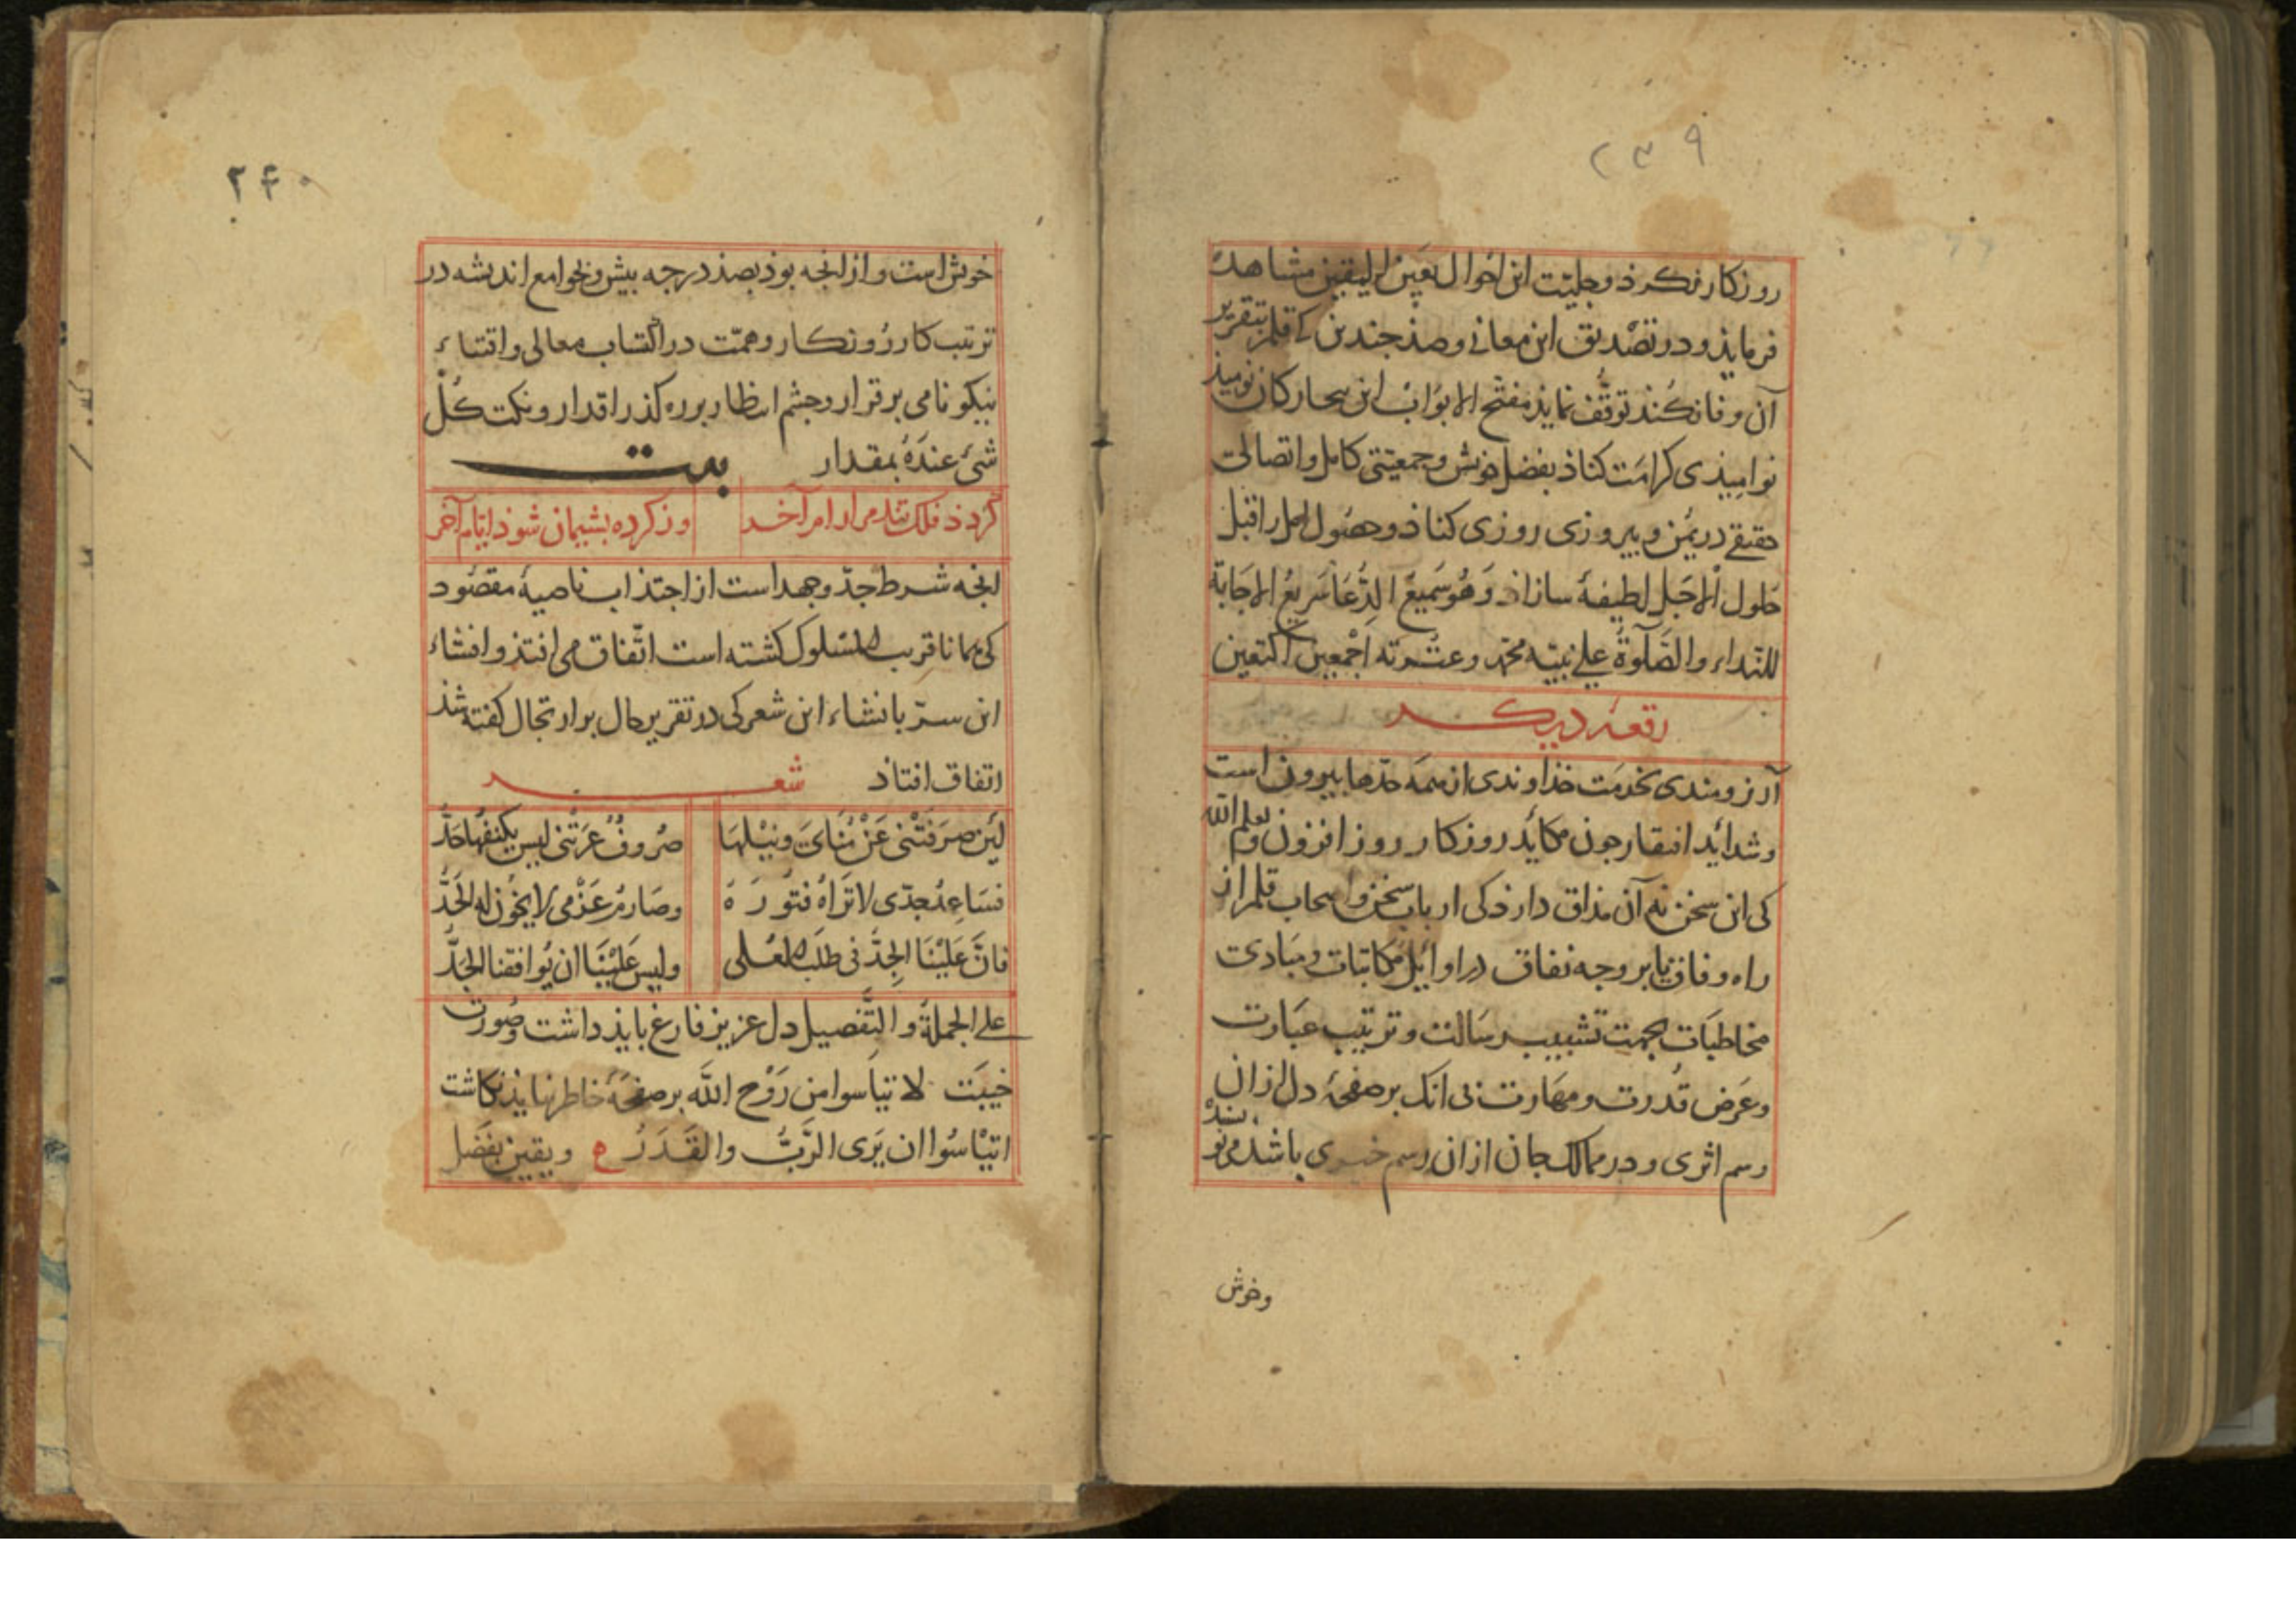 ۲۳۹
روزکار نکرذ و جلیّت این احوال بعین الیقین مشاهدت
فرمایذ و در تصدیق این معانی و صذ جندین کی قلم بتقریر
آن وفا نکند توقّف نمایذ مفتّح الابواب این سحارکان نومیذ
نوامیذی کرامت کناذ بفضل خویش و جمعیّتی کامل و اتصالی
حقیقی در یمن و بیروزی روزی کناذ و حصول امل را قبل
حلول الاجل لطیفهٔ سازاذ وَهُوَ سَمِیعُ الدُّعَا سَرِیعُ الاِجَابَة
للنداء والصَّلوةُ علی نبیّه محمّد وعترته اجْمعین اکتعین
رقعهٔ دیکر
آرزومندی بخدمَت خذاوندی از همه حدّها بیرون است
و شداید افتقار جون مکاید روزکار روز افزون و لم یعلم الله
کی این سخن نه آن مذاق دارذ کی ارباب سخن و اصحاب قلم از
راه وفاق یا بر وجه نفاق در اوایل مکاتبات و مبادی
مخاطبَات بجهت تشبیب رسَالت و ترتیب عبَارت
و عَرَض قُدرت و مهَارت نی انک بر صفحهٔ دل از ان
رسم اثری و در ممالک جان از ان رسم خبری باشذ می نویسند
وخوش
۲۴۰
خوش است و از انجه بوذ بصذ درجه بیش و بجوامع اندیشه در
ترتیب کار رُوزکار و همّت در اکتساب معالی و اقتناء
نیکو نامی برقرار و جشم انتظار بر ره کذر اقدار و نکت کلُّ
شیءٍ عندَهُ بمقدار بیت
کردذ فلک تند مرا رام آخر وز کرده بشیمان شوذ ایّام آخر
انجه شرط جدّ و جهد است از اجتذاب ناصیهٔ مقصُود
کی همانا قریب المسلوک کشته است اتّفاق می افتذ و افشاء
این سرّ بانشاء این شعر کی در تقریر حال بر ارتجال کفته شذ
اتفاق افتاذ شعر
لَئِن صَرَفَتْنی عَنْ مُنَایَ وَنیْلِهَا صُروفٌ عَرَتنی لیس یکنفُها حَدُّ
فسَاعِدُ جدّی لا تَرَاهُ فتُورَهُ وصَارمُ عَزْمی لا یخُون له الحَدُّ
فانَّ عَلَیْنَا الجِدَّ فی طلَب العُلی ولیس عَلیْنَا ان یُوافقنا الجَدُّ
علی الجملة والتَّفصیل دل عزیز فارغ بایذ داشت و صُورت
خیبَت لا تیأسوا من رَوْح الله بر صفحَهٔ خاطر نبایذ نکاشت
اتیْأسُوا ان یَری الرَّبُّ والقَدَرُ ه و یقین بفَضل